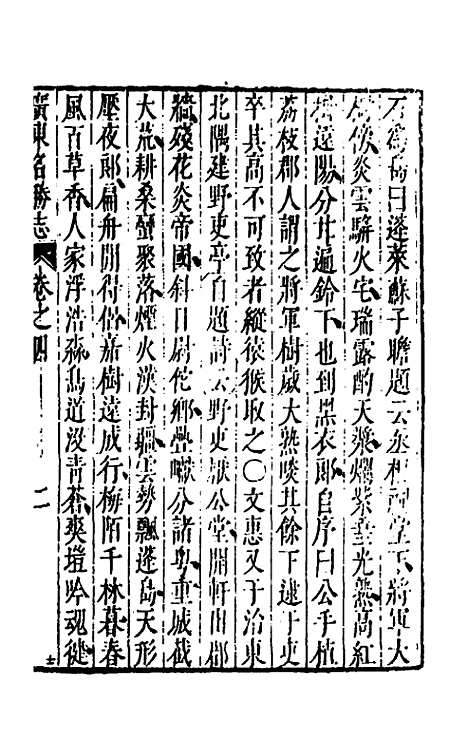 石為島曰蓬萊蘇子瞻題云丞相祠堂下將軍大
樹傍炎雲駢火宅瑞露酌天漿爛紫垂光熟高紅
掛遠陽分甘遍鈴下也到黑衣郎自序曰公手植
荔枝郡人謂之將軍樹歲大熟啖其餘下逮于吏
卒其高不可致者縱猿猴取之○文惠又于治東
北隅建野吏亭自題詩云野吏猷公堂開軒出郡
牆殘花炎帝國斜日尉佗鄉疊巘分諸粤重城截
大荒耕桑蠻聚落煙火漢封疆雲勢飄蓬島天形
壓夜郎扁舟閒得侶嘉樹遠成行梅陌千林暮春
風百草香人家浮浩淼鳥道沒青蒼爽塏吟魂徤
廣東名勝志 卷之四 二